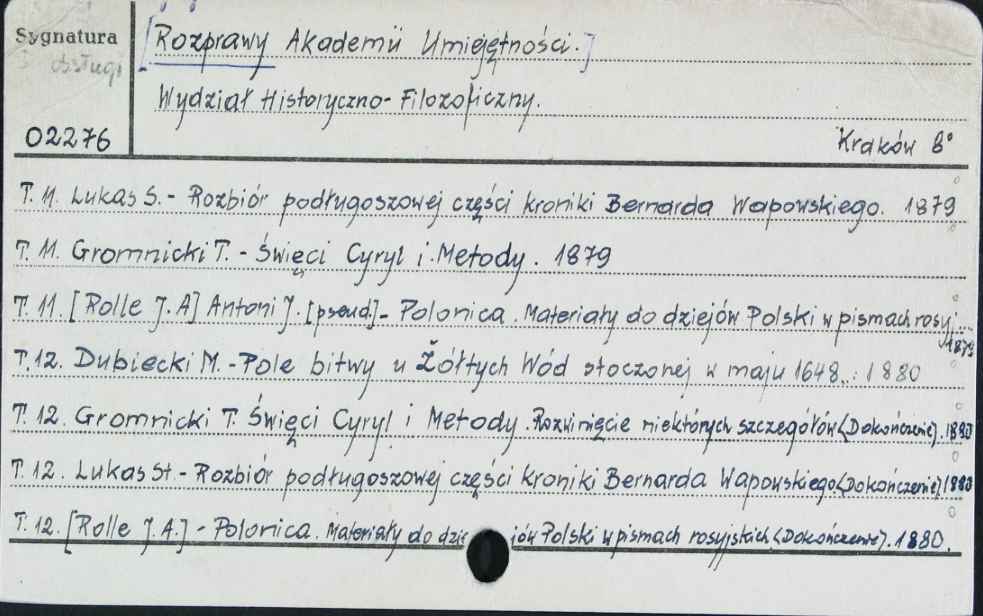 Sygnatura
[Rozprawy Akademii Umiejętności.]
Wydział Historyczno-Filozoficzny.
02276
Kraków 8°
T. 11. Lukas S. - Rozbiór podługoszowej części kroniki Bernarda Wapowskiego. 1879
T. 11. Gromnicki T. - Święci Cyryl i Metody. 1879
T. 11. [Rolle J. A] Antoni J. [pseud.] - Polonica. Materiały do dziejów Polski w pismach rosyj...
1879
T. 12. Dubiecki M. - Pole bitwy u Żółtych Wód stoczonej w maju 1648... 1880
T. 12. Gromnicki T. Święci Cyryl i Metody. Rozwinięcie niektórych szczegółów (Dokończenie). 1880
T. 12. Lukas St. - Rozbiór podługoszowej części kroniki Bernarda Wapowskiego (Dokończenie) 1880
T. 12. [Rolle J. A.] - Polonica. Materiały do dziejów Polski w pismach rosyjskich. (Dokończenie). 1880.